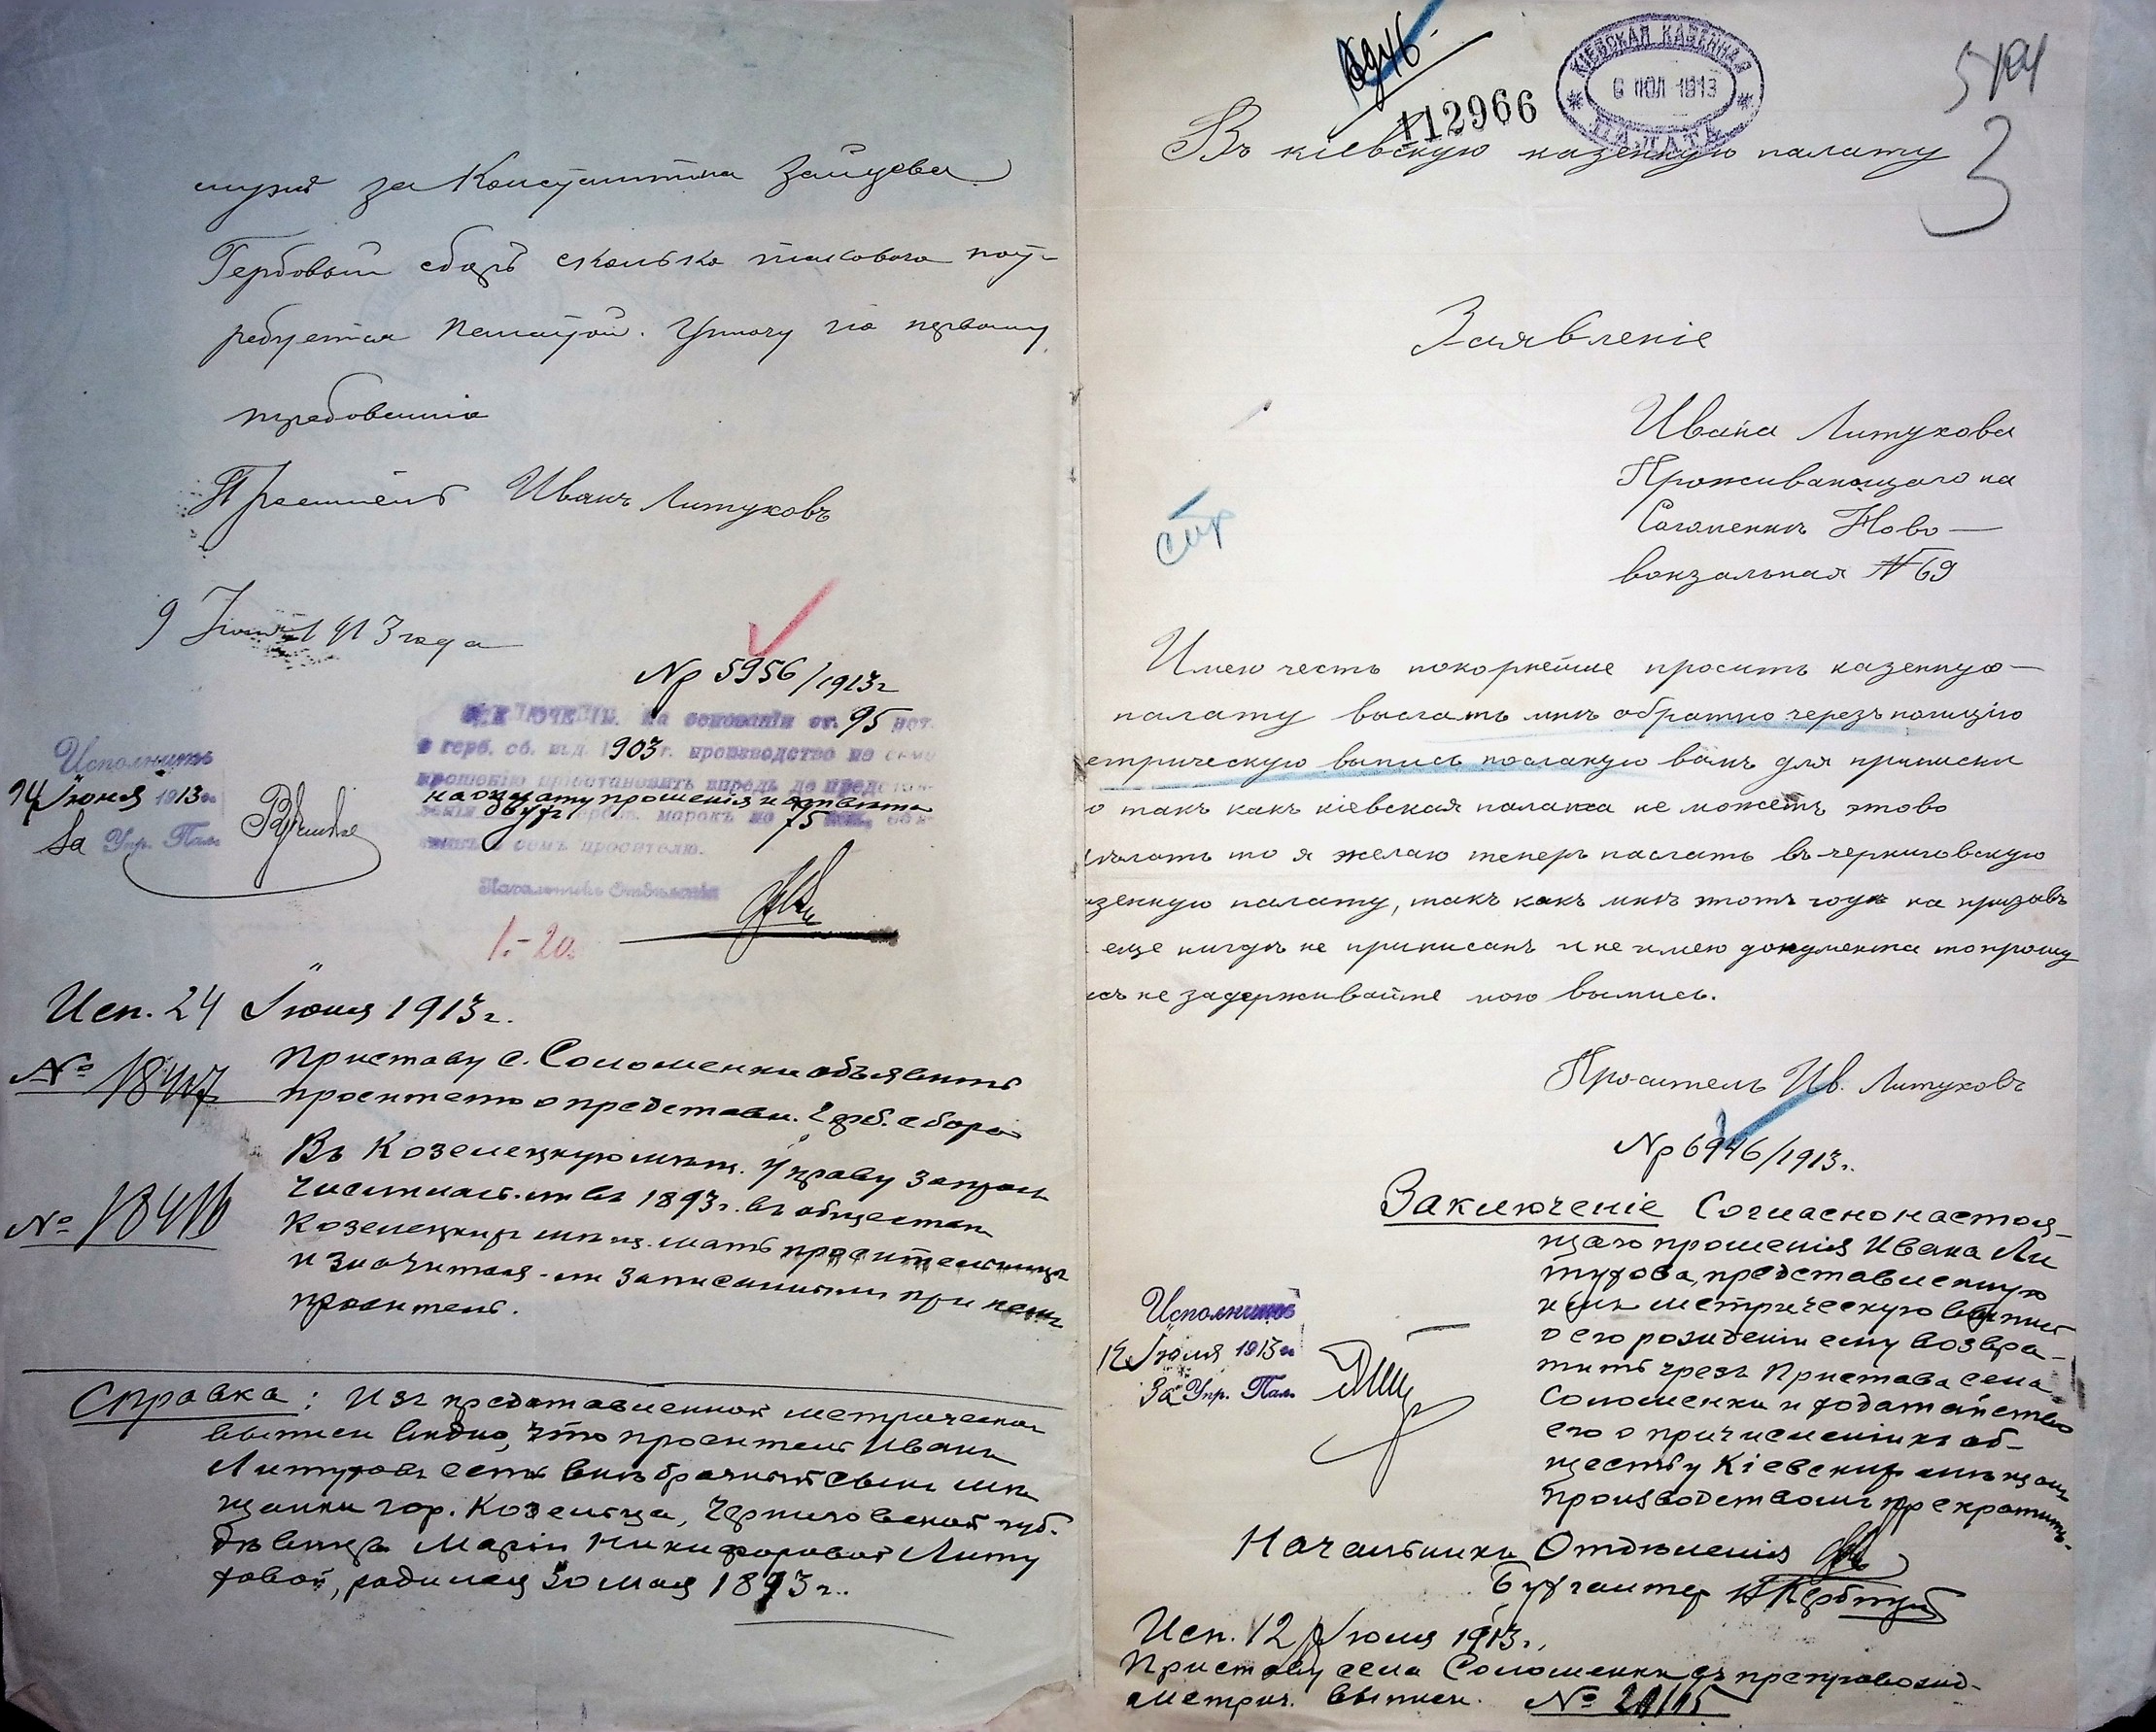 мужъ за Константина Зайцева
Гербовый сборъ сколько таковаго пот-
ребуется Палатой. Уплачу по первому
требованію
Проситель Иванъ Литуховъ
9 Іюня 1913 года
Nр 5956/1913г
ЗАКЛЮЧЕНІЕ. На основаніи ст. 95 уст.
о герб. сб. изд. 1903 г. производство по сему
прошенію пріостановить впредь до представ-
на оплату прошенія и отвѣта
ленія двухъ гербов. марокъ по 75 коп., объ-
явивъ о семъ просителю.
Начальникъ Отдѣленія
Исполнить
24 Іюня 1913 г.
За Упр. Пал.
1.-20.
Исп. 24 Іюня 1913г.
Приставу с. Соломенки объявить
№ 18417
просителю о представл. герб. сбора
Въ Козелецкую мѣщ. Управу запрос
числилась-ли въ 1893г. въ обществѣ
№ 18416
Козелецкихъ мѣщ. мать просителя
и значится-ли записаннымъ при ней
проситель.
Справка: Изъ представленной метрической
выписи видно, что проситель Иванъ
Литуховъ есть внѣбрачный сынъ мѣ
щанки гор. Козельца, Черниговской губ.
дѣвицы Маріи Никифоровой Литу
ховой, родился 30 мая 1893г.
6946
112966
КІЕВСКАЯ КАЗЕННАЯ
6 ІЮЛ 1913
ПАЛАТА
3
Въ кіевскую казенную палату
Заявленіе
Ивана Литухова
Проживающаго на
Соломенкѣ Ново-
вокзальная № 69
стр
Имею честь покорнейше просить казенную-
палату выслать мнѣ обратно черезъ полицію
етрическую выпись посланую вамъ для приписки
о такъ какъ кіевская палата не можетъ этово
дѣлать то я желаю теперь паслать въ черниговскую
зенную палату, такъ какъ мнѣ этотъ годъ на призывъ
еще нигдѣ не приписанъ и не имею документа то прошу
асъ не задерживайте мою выпись.
Проситель Ив. Литуховъ
Nр 6946/1913г.
Заключеніе Согласно настоя-
щаго прошенія Ивана Ли
тухова, представленную
имъ метрическую выпись
о его рожденіи ему возвра-
тить чрезъ Пристава села
Соломенки и ходатайство
его о причисленіи къ об-
ществу Кіевскихъ мѣщанъ
производствомъ прекратить.
Исполнить
12 Іюля 1913 г.
За Упр. Пал.
Начальникъ Отдѣленія
Бухгалтер
Исп. 12 Іюля 1913г.
Приставу села Соломенки съ препровожд.
метрич. выписи. № 20115